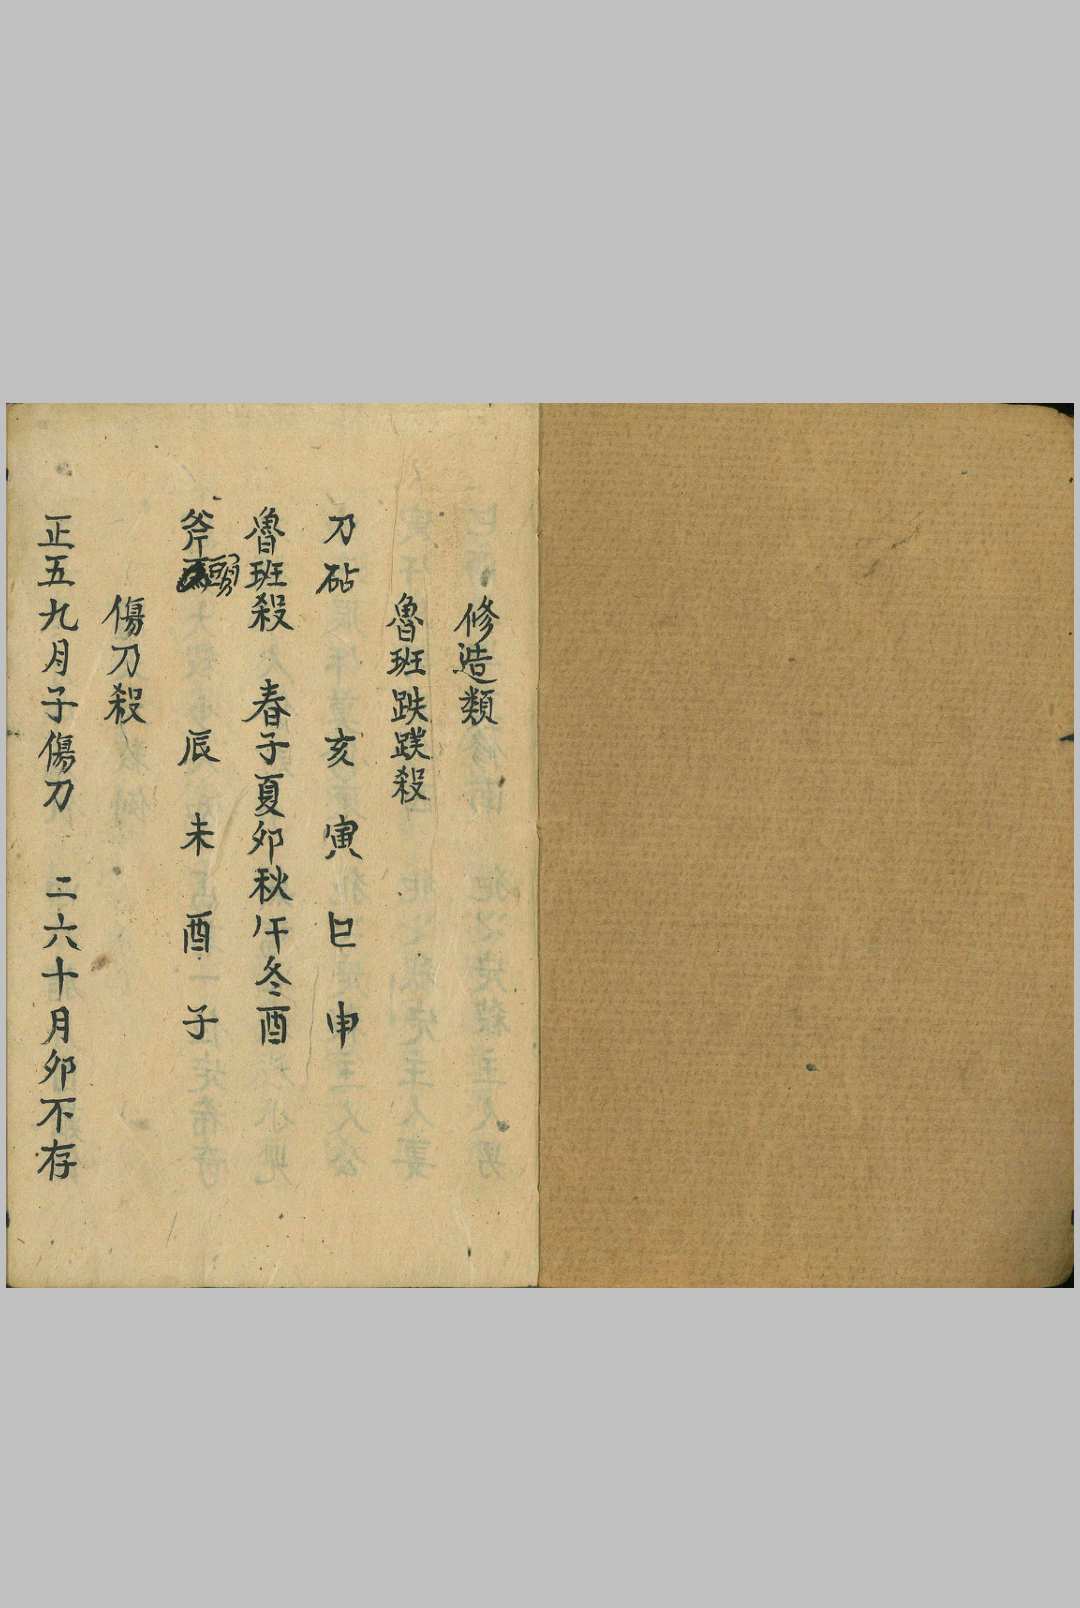 修造類
魯班跌蹼殺
刀砧 亥 寅 巳 申
魯班殺 春子夏卯秋午冬酉
斧頭 辰 未 酉 子
傷刀殺
正五九月子傷刀 二六十月卯不存